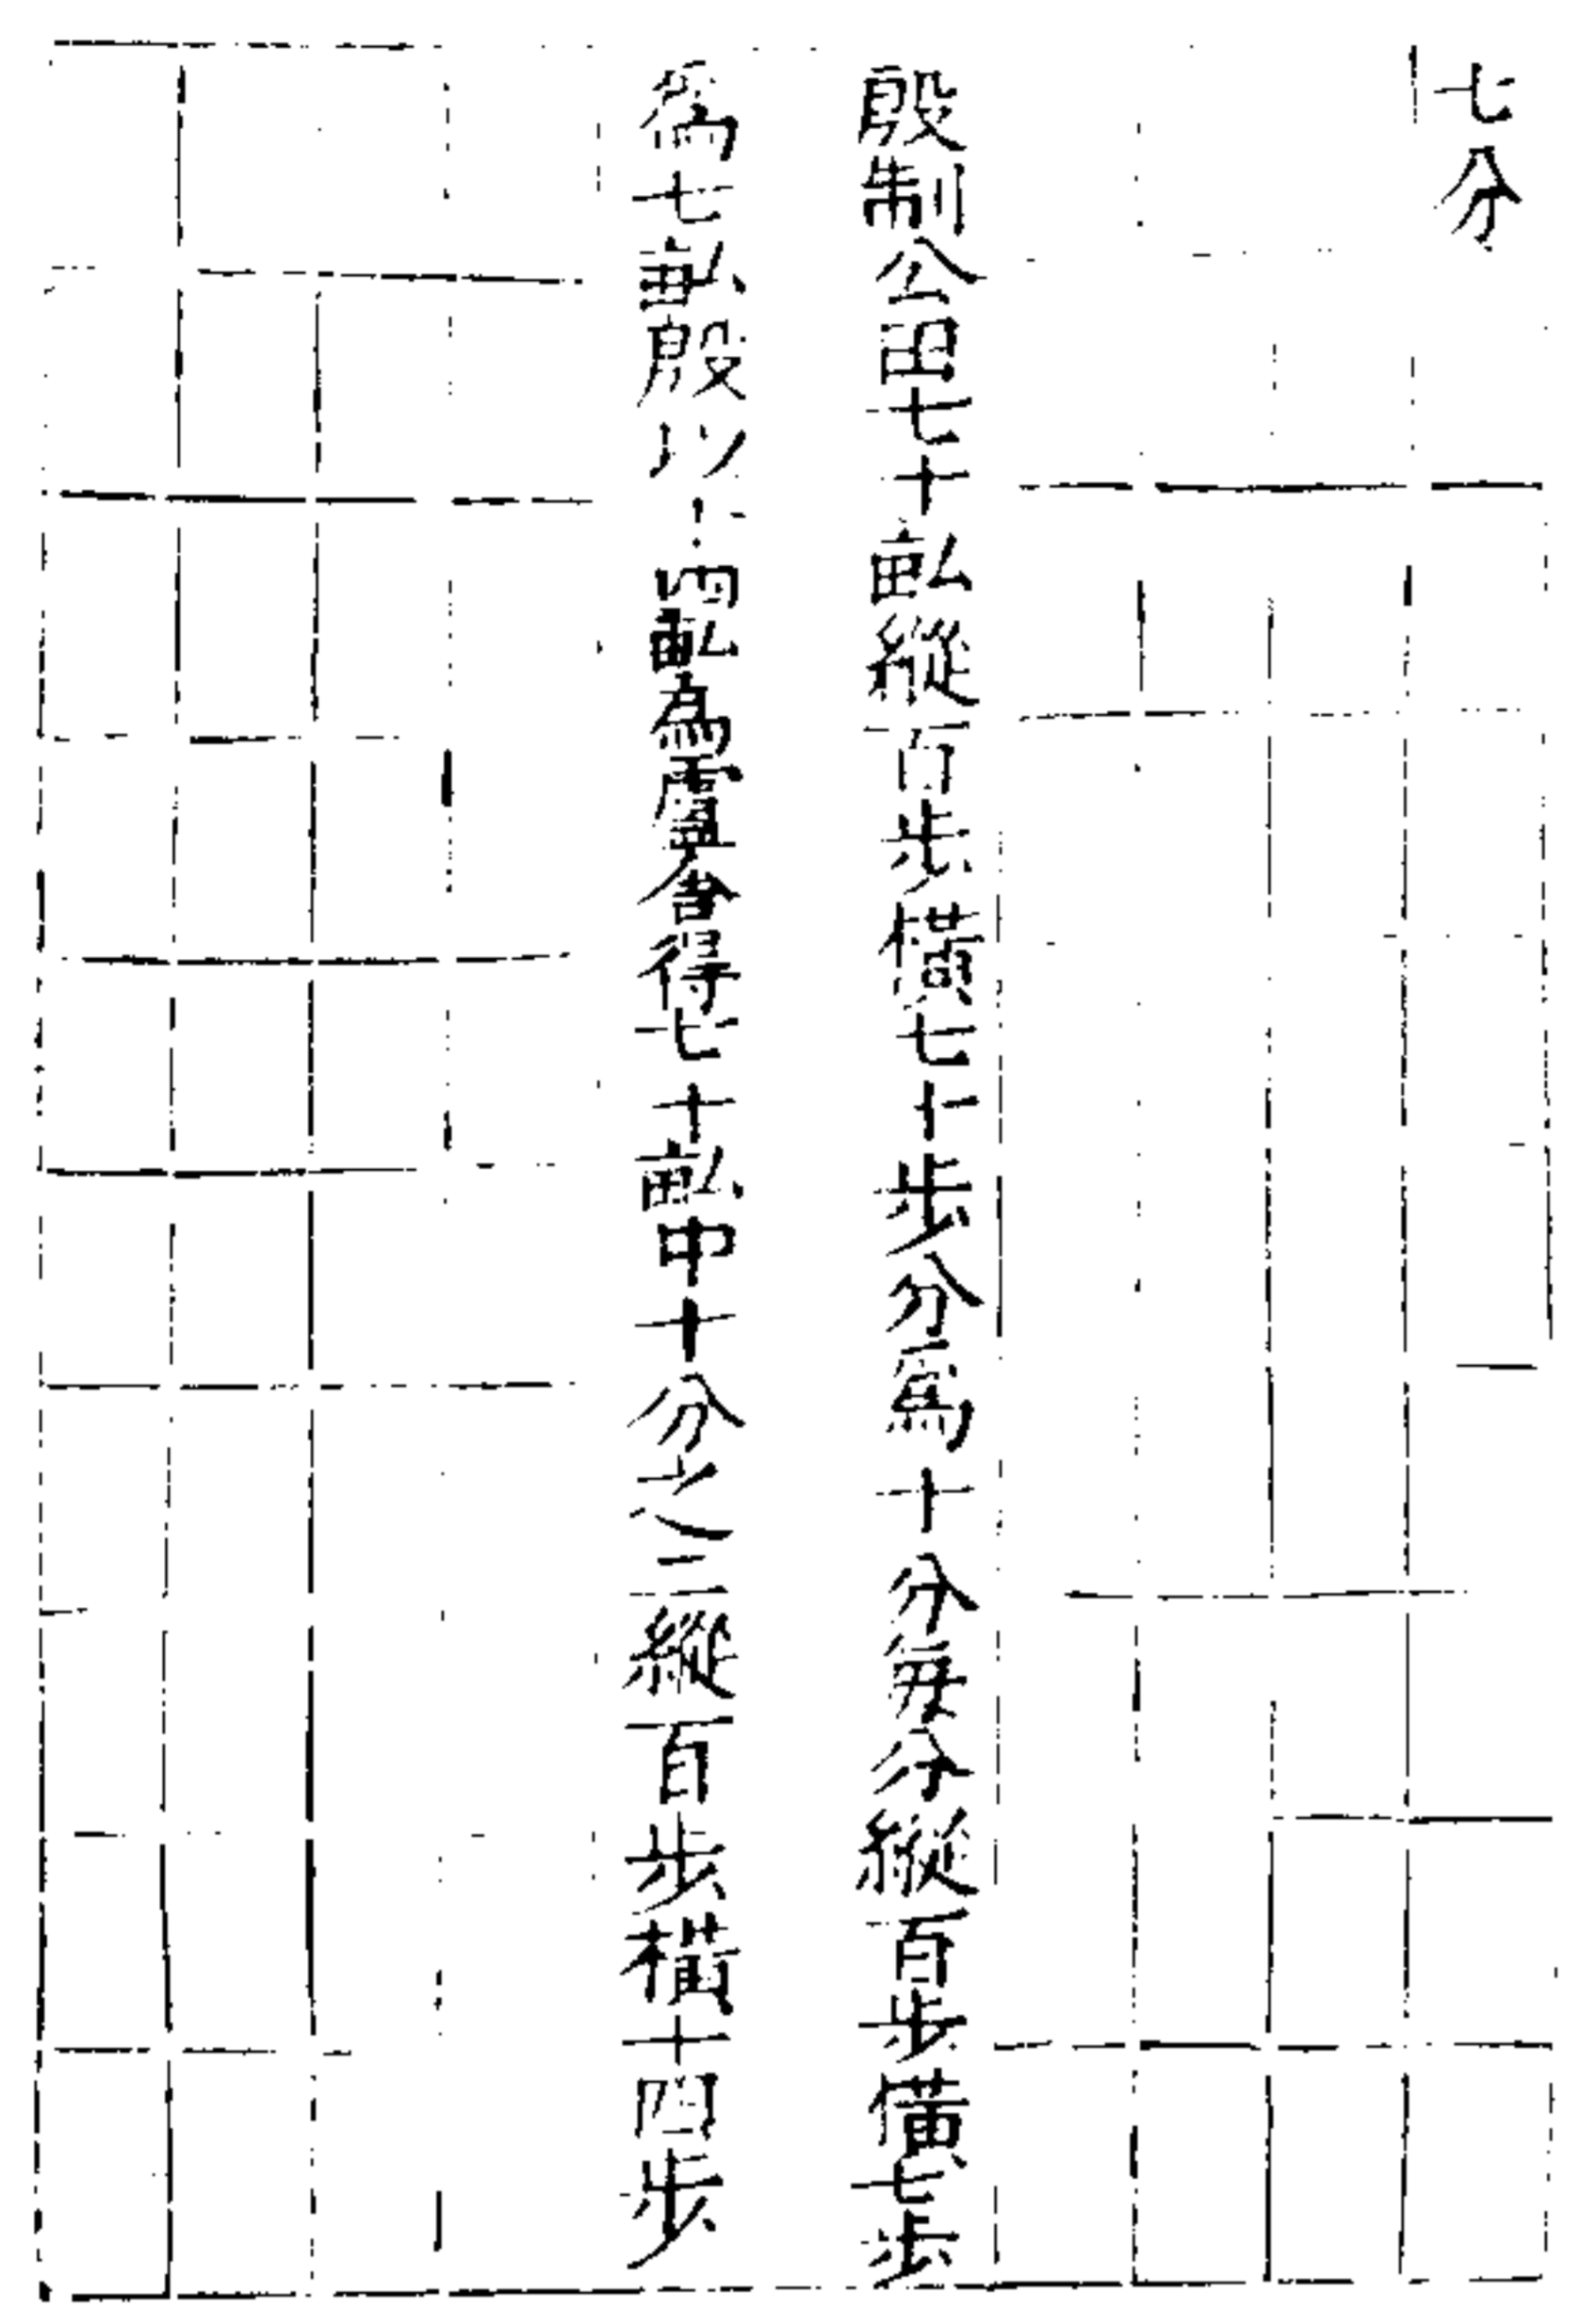 七分
殷制公田七十畆縱百步橫七十步分爲十分每分縱百步橫七步
爲七畆殷以十四畆爲廬舍得七十畆中十分之二縱百步橫十四步